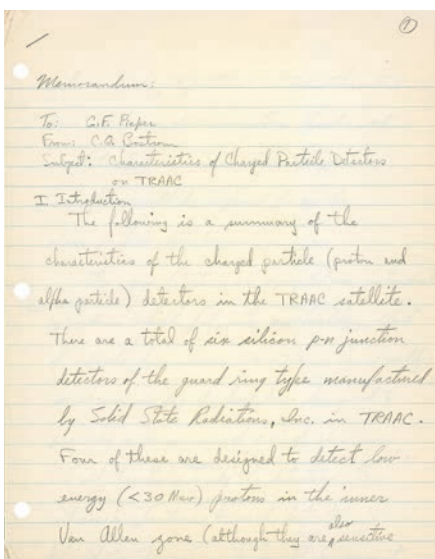 1
Memorandum:
To: G.F. Pieper
From: C.O. Bostrom
Subject: Characteristics of Charged Particle Detectors
on TRAAC
I Introduction
The following is a summary of the
characteristics of the charged particle (proton and
alpha particle) detectors in the TRAAC satellite.
There are a total of six silicon p-n junction
detectors of the guard ring type manufactured
by Solid State Radiations, Inc. in TRAAC.
Four of these are designed to detect low
energy (<30 Mev) protons in the inner
Van Allen zone (although they are also sensitive